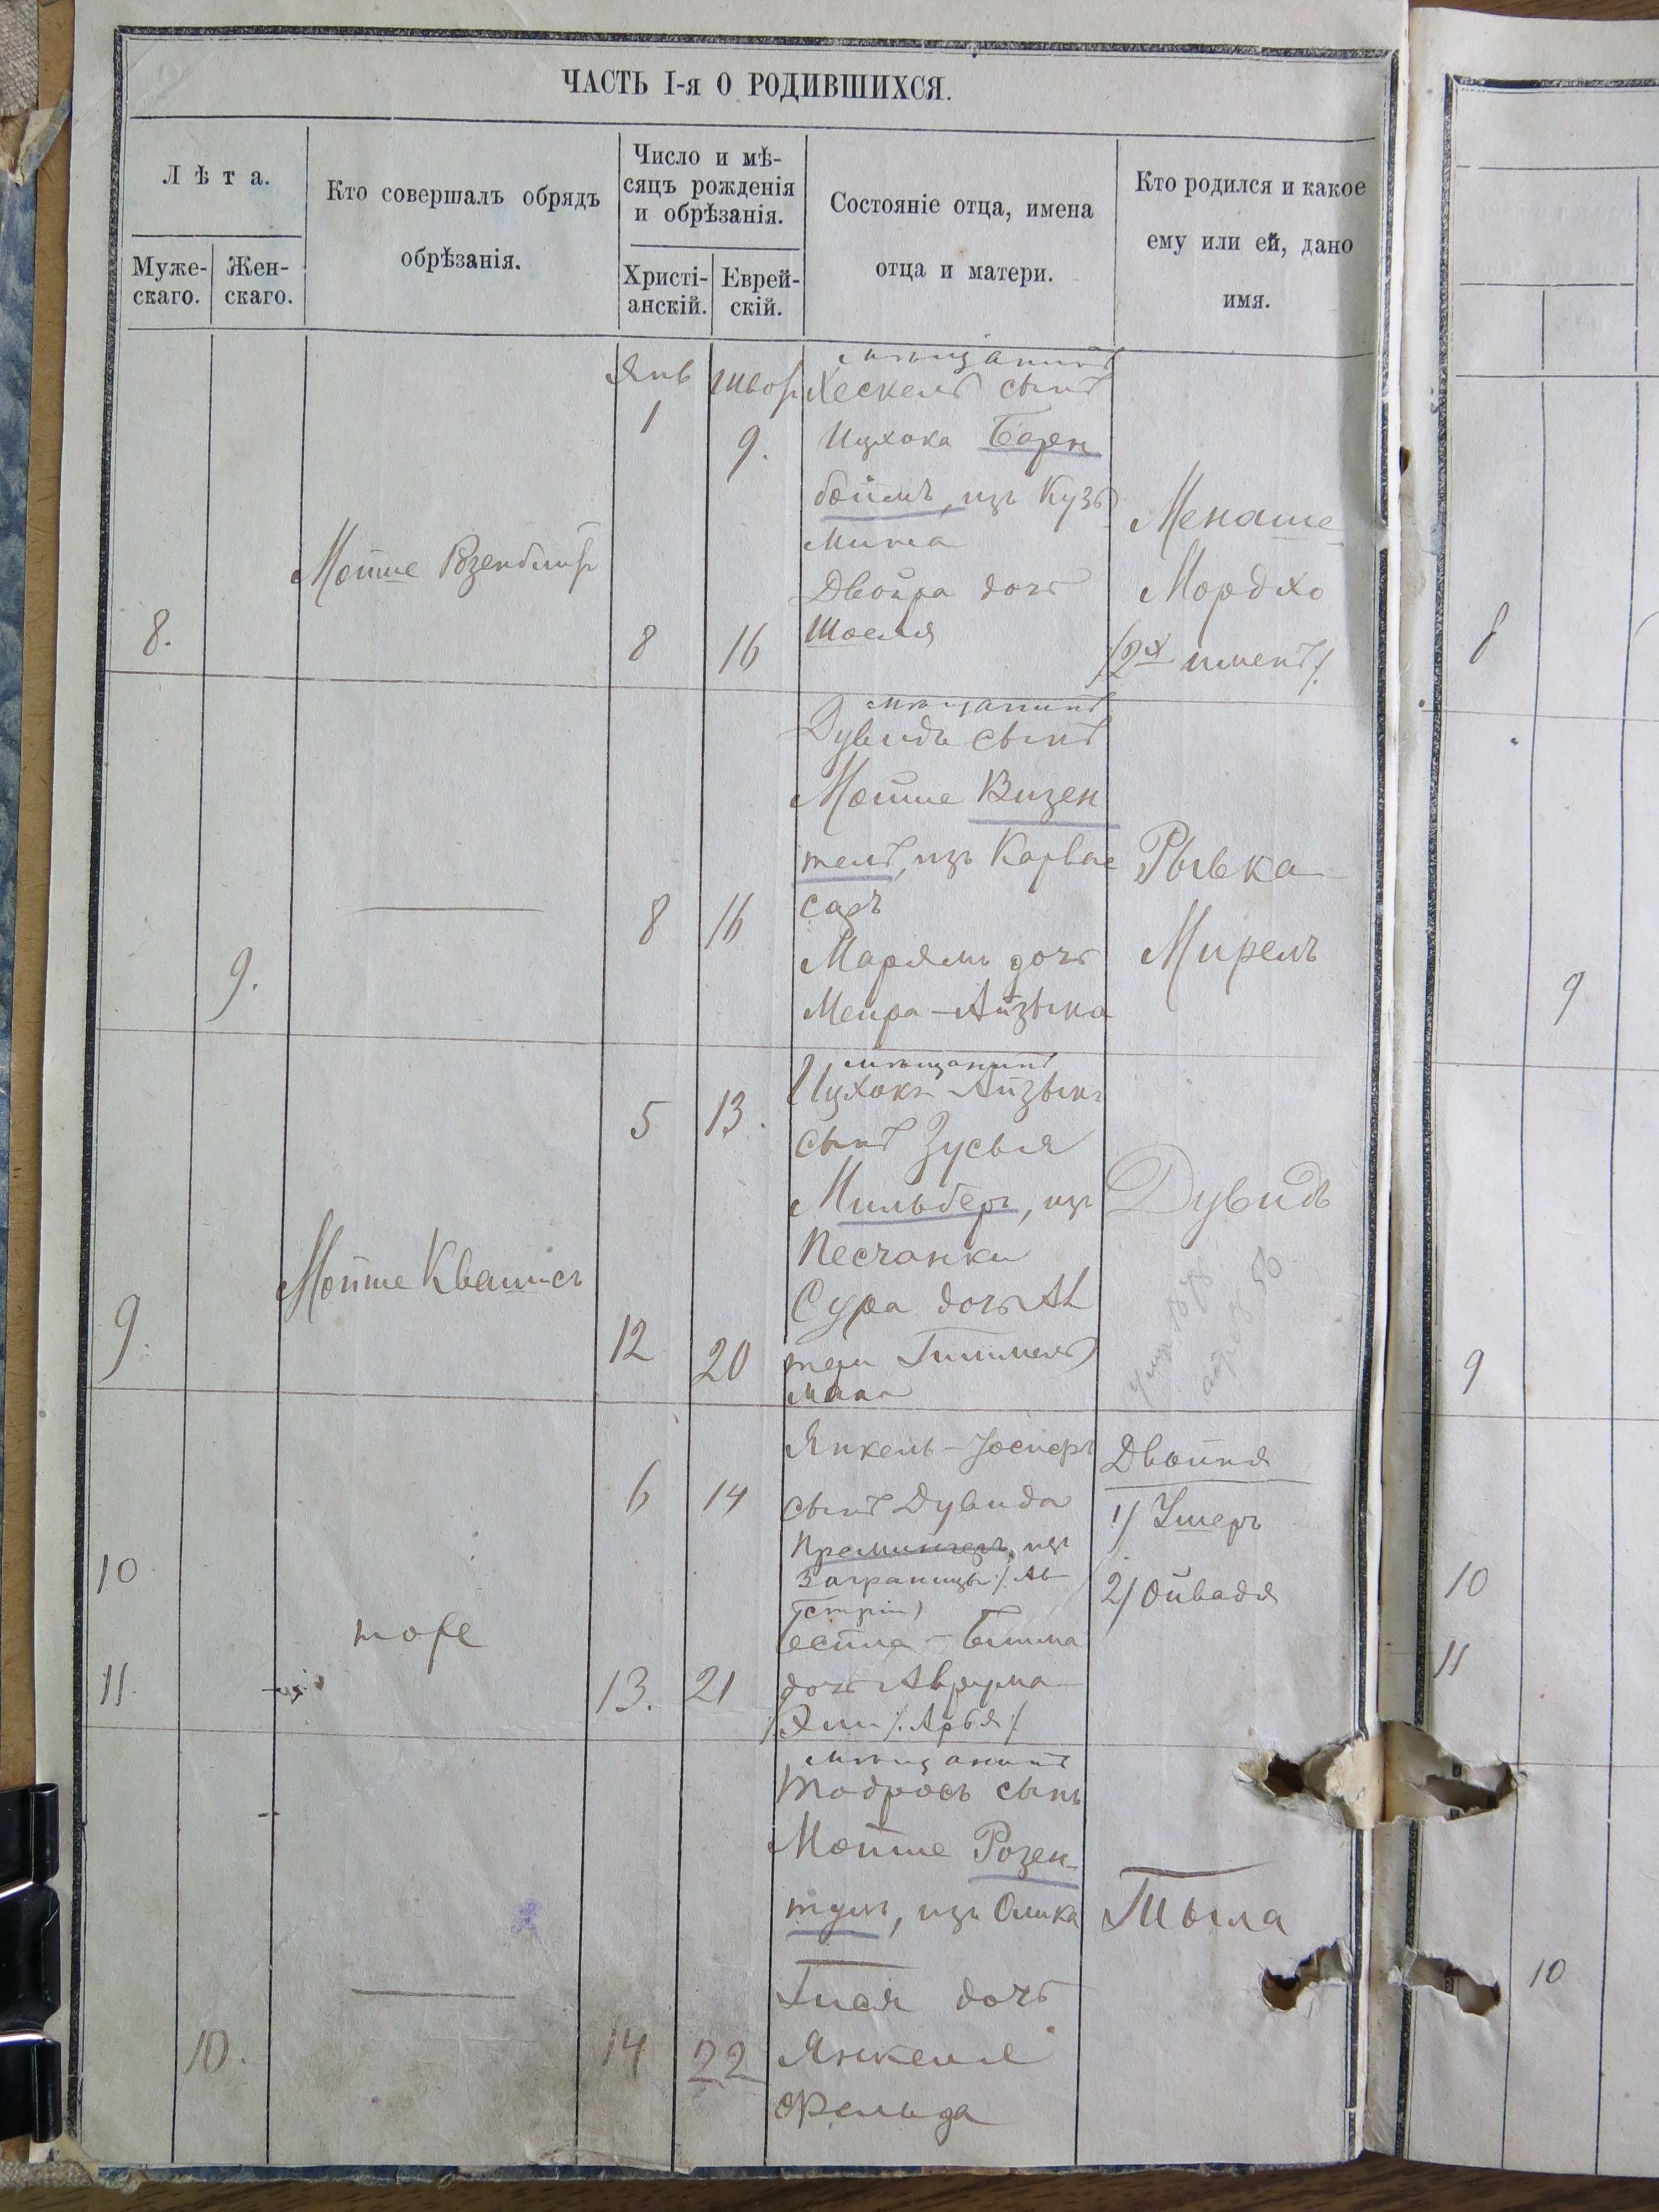 ЧАСТЬ I-я О РОДИВШИХСЯ.
Лѣта.
Муже-
скаго.
Жен-
скаго.
Кто совершалъ обрядъ
обрѣзанія.
Число и мѣ-
сяцъ рожденія
и обрѣзанія.
Христі-
анскій.
Еврей-
скій.
Состояніе отца, имена
отца и матери.
Кто родился и какое
ему или ей, дано
имя.
8.
Мойше Розенблит
Янв
1
8
9.
16
мѣщанинъ
Хескель сынъ
Ицхока Барен
боймъ, изъ Кузь
мина
Двойра дочь
Шоеля
Менаше
Мордхо
/2х именъ/.
8
9.
8
16
мѣщанинъ
Дувидъ сынъ
Мойше Визен
тель, изъ Карвас
саръ
Марямъ дочь
Меира-Айзыка
Рывка
Мирель
9
9.
Мойше Квашисъ
5
12
13.
20
мѣщанинъ
Ицхокъ-Айзыкъ
сынъ Зусья
Мильберъ, изъ
Песчанки
Сура дочь
мана
Дувидъ
9
10
11.
тоже
6
13.
14
21
Янкель-Іосперъ
сынъ Дувида
изъ
Заграницы /. Ав
стріи)
Бейла-Бима
дочь Аврума
/. Арья /
Двойня
1/ Ушеръ
2/ Ойвадя
10
11
10.
14
22
мѣщанинъ
Тодросъ сынъ
Мойше Розен-
тулъ, изъ Олика
Тися дочь
Янкеля
Фельда
Тыла
10